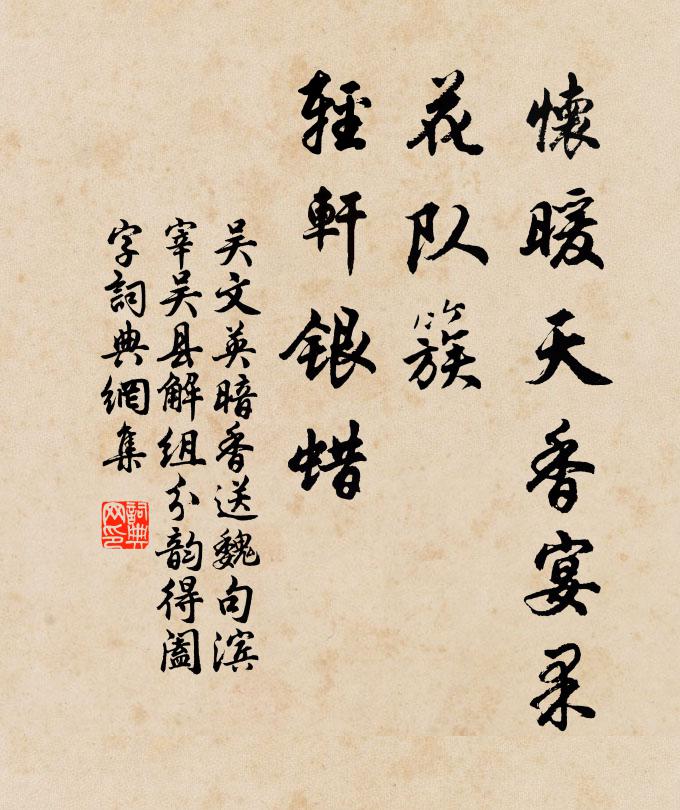 懷暖天香宴果
花队簇
輕軒银蜡
吴文英暗香送魏句滨
宰吴县解组分韵得阖
字詞典網集
詞典网印